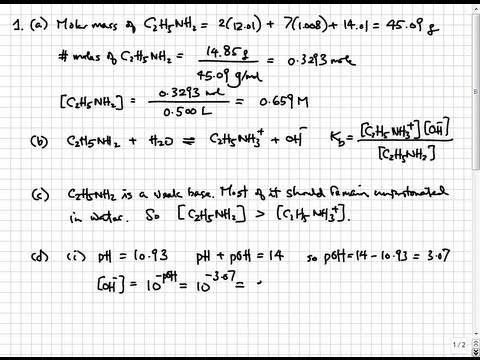 1. (a) Molar mass of C2H5NH2 = 2(12.01) + 7(1.008) + 14.01 = 45.09 g
# moles of C2H5NH2 = 14.85 g / 45.09 g/mol = 0.3293 mole
[C2H5NH2] = 0.3293 mol / 0.500 L = 0.659 M
(b) C2H5NH2 + H2O ⇌ C2H5NH3⁺ + OH⁻ Kb = [C2H5NH3⁺][OH⁻] / [C2H5NH2]
(c) C2H5NH2 is a weak base. Most of it should remain unprotonated
in water. So [C2H5NH2] > [C2H5NH3⁺].
(d) (i) pH = 10.93 pH + pOH = 14 so pOH = 14 - 10.93 = 3.07
[OH⁻] = 10^-pOH = 10^-3.07 =
1 / 2